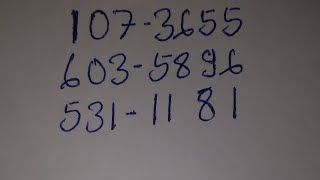 107-3655
603-5896
531-11 81